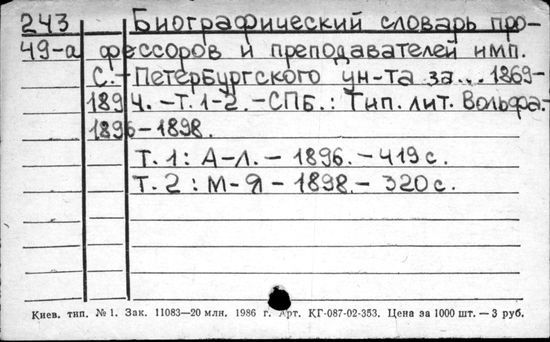 243 Биографический словарь про-
49-а фессоров и преподавателей имп.
С.-Петербургского ун-та за...1869-
1894. -Т.1-2.-СПБ.: Тип. лит. Вольфа.
1896-1898.
Т.1: А-Л. - 1896. - 419 с.
Т.2: М-Я - 1898. - 320 с.
Киев. тип. № 1. Зак. 11083—20 млн. 1986 г. Арт. КГ-087-02-353. Цена за 1000 шт. — 3 руб.